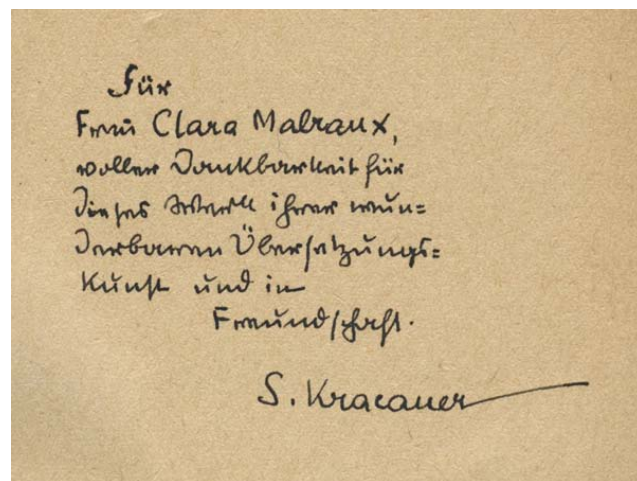 Für
Frau Clara Malraux,
voller Dankbarkeit für
dieses Werk ihrer wun=
derbaren Übersetzungs=
Kunst und in
Freundschaft.
S. Kracauer